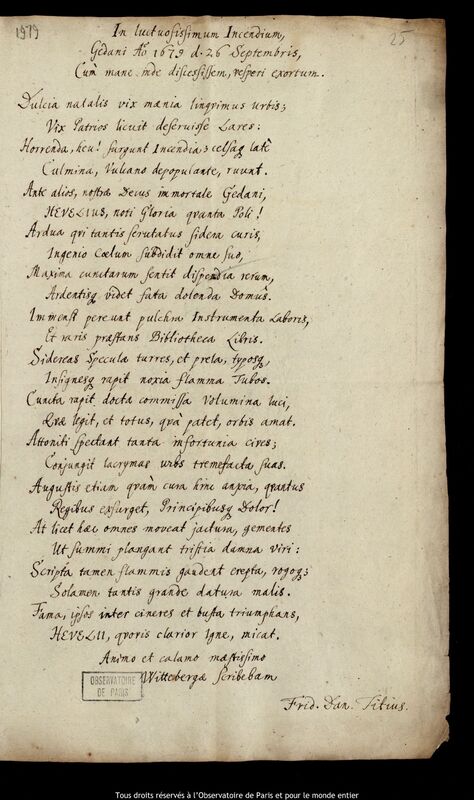 1979
25
In luctuosissimum Incendium,
Gedani Ao 1679 d. 26 Septembris,
Cùm mane inde discessissem, vesperi exortum.
Dulcia natalis vix mænia linqvimus urbis;
Vix Patrios licuit deseruisse Lares:
Horrenda, heu! surgunt Incendia; celsaq; latè
Culmina, Vulcano depopulante, ruunt.
Ante alios, nostræ Decus immortale Gedani,
HEVELIUS, noti Gloria qvanta Poli!
Ardua qvi tantis scrutatus sidera curis,
Ingenio Cœlum subdidit omne suo,
Maxima cunctarum sentit dispendia rerum,
Ardentisq; videt fata dolenda Domûs.
Immensi pereunt pulchra Instrumenta Laboris,
Et raris præstans Bibliotheca Libris.
Sidereas Specula turres, et prela, typosq;
Insignesq; rapit noxia flamma Tubos.
Cuncta rapit docta commissa Volumina luci,
Qvæ legit, et totus, qvà patet, orbis amat.
Attoniti spectant tanta infortunia cives;
Conjungit lacrymas urbs tremefacta suas.
Augustis etiam qvàm cura hinc anxia, qvantus
Regibus exsurget, Principibusq; Dolor!
At licet hæc omnes moveat jactura, gementes
Ut summi plangant tristia damna viri:
Scripta tamen flammis gaudent erepta, rogoq;;
Solamen tantis grande datura malis.
Fama, ipsos inter cineres et busta triumphans,
HEVELII, qvovis clarior Igne, micat.
Animo et calamo mæstissimo
Wittebergæ scribebam
Frid. Dan. Titius.
OBSERVATOIRE
DE PARIS
Tous droits réservés à l'Observatoire de Paris et pour le monde entier